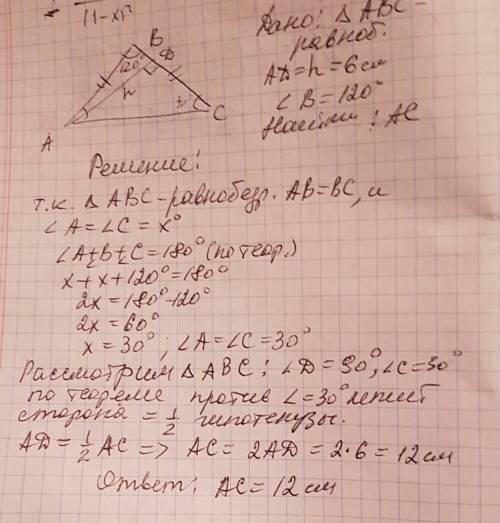 (1-x)²
B
D
120°
h
30°
A
C
Дано: △ ABC -
равноб.
AD=h=6см
∠B=120°
Найти: AC
Решение:
т.к. △ ABC - равнобедр. AB=BC, и
∠A=∠C=x°
∠A+B+C=180° (по теор.)
x+x+120°=180°
2x=180°-120°
2x=60°
x=30°; ∠A=∠C=30°
Рассмотрим △ ABC: ∠D=90°, ∠C=30°
по теореме против ∠=30° лежит
сторона = 1/2 гипотенузы.
AD=1/2 AC => AC=2AD=2·6=12см
Ответ: AC=12см